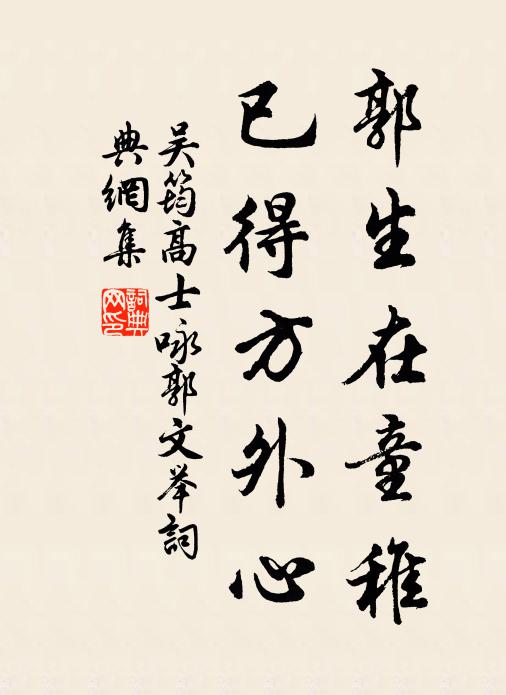 郭生在童稚
已得方外心
吴筠高士咏郭文举詞
典網集
詞典网印